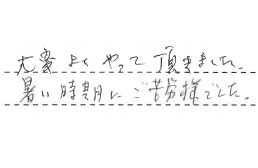 大変よくやって頂きました。
暑い時期にご苦労様でした。